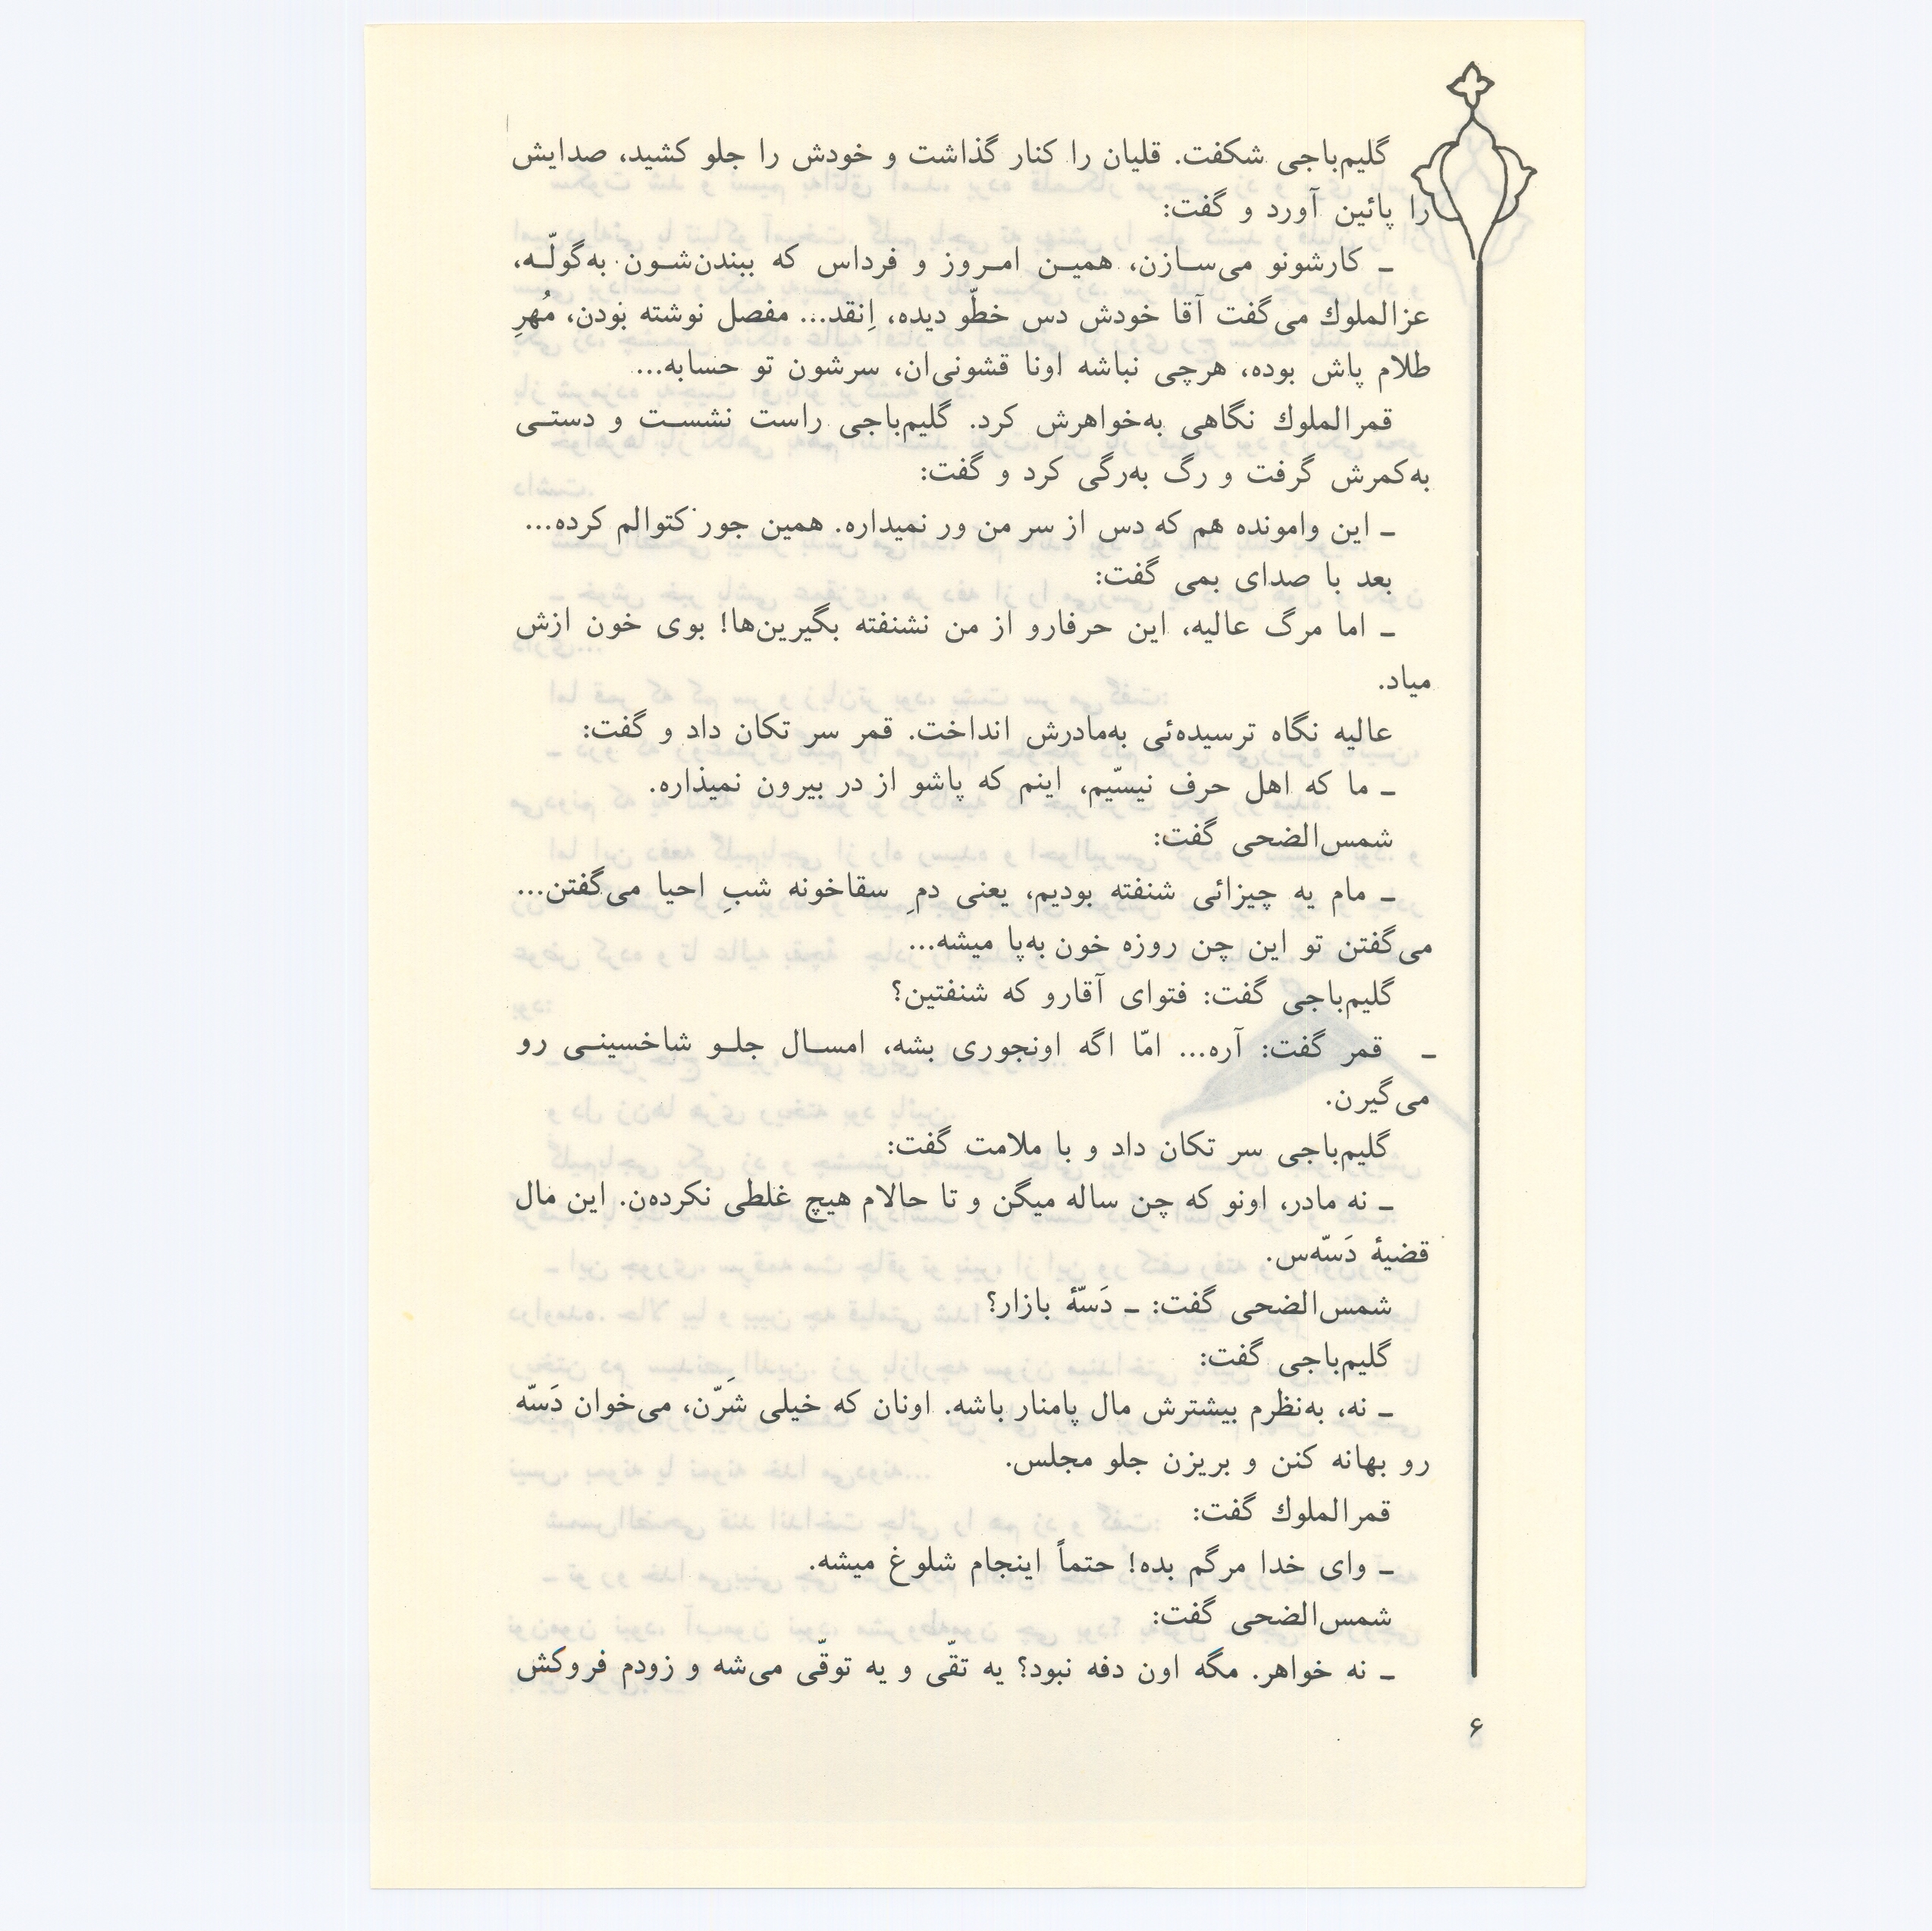 گلیم‌باجی شکفت. قلیان را کنار گذاشت و خودش را جلو کشید، صدایش
را پائین آورد و گفت:
ـ کارشونو می‌سازن، همین امروز و فرداس که ببندن‌شون به‌گولّه،
عزالملوك می‌گفت آقا خودش دس خطّو دیده، اِنقد... مفصل نوشته بودن، مُهرِ
طلام پاش بوده، هرچی نباشه اونا قشونی‌ان، سرشون تو حسابه...
قمرالملوك نگاهی به‌خواهرش کرد. گلیم‌باجی راست نشست و دستی
به‌کمرش گرفت و رگ به‌رگی کرد و گفت:
ـ این وامونده هم که دس از سر من ور نمیداره. همین جور کتوالم کرده...
بعد با صدای بمی گفت:
ـ اما مرگ عالیه، این حرفارو از من نشنفته بگیرین‌ها! بوی خون ازش
میاد.
عالیه نگاه ترسیده‌ئی به‌مادرش انداخت. قمر سر تکان داد و گفت:
ـ ما که اهل حرف نیسّیم، اینم که پاشو از در بیرون نمیذاره.
شمس‌الضحی گفت:
ـ مام یه چیزائی شنفته بودیم، یعنی دمِ سقاخونه شبِ احیا می‌گفتن...
می‌گفتن تو این چن روزه خون به‌پا میشه...
گلیم‌باجی گفت: فتوای آقارو که شنفتین؟
ـ قمر گفت: آره... امّا اگه اونجوری بشه، امسال جلو شاخسینی رو
می‌گیرن.
گلیم‌باجی سر تکان داد و با ملامت گفت:
ـ نه مادر، اونو که چن ساله میگن و تا حالام هیچ غلطی نکرده‌ن. این مال
قضیهٔ دَسّه‌س.
شمس‌الضحی گفت: ـ دَسّهٔ بازار؟
گلیم‌باجی گفت:
ـ نه، به‌نظرم بیشترش مال پامنار باشه. اونان که خیلی شَرّن، می‌خوان دَسّه
رو بهانه کنن و بریزن جلو مجلس.
قمرالملوك گفت:
ـ وای خدا مرگم بده! حتماً اینجام شلوغ میشه.
شمس‌الضحی گفت:
ـ نه خواهر. مگه اون دفه نبود؟ یه تقّی و یه توقّی می‌شه و زودم فروکش
۶